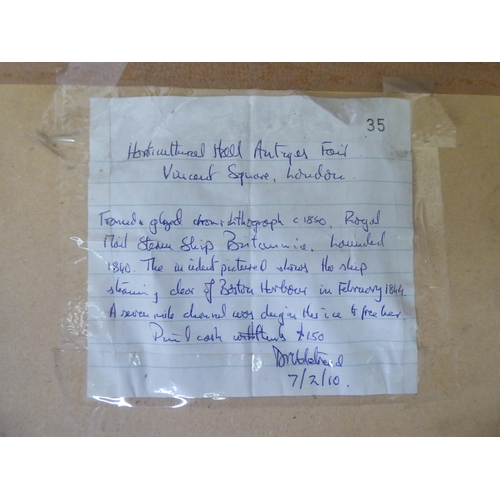 35
Horticultural Hall Antiques Fair
Vincent Square, London.
Framed & glazed chromolithograph c 1840, Royal
Mail Steam Ship Britannia. Launched
1840. The incident pictured shows the ship
steaming clear of Boston Harbour in February 1844
A seven mile channel was dug in the ice to free her
Paid cash with thanks £150
7/2/10.